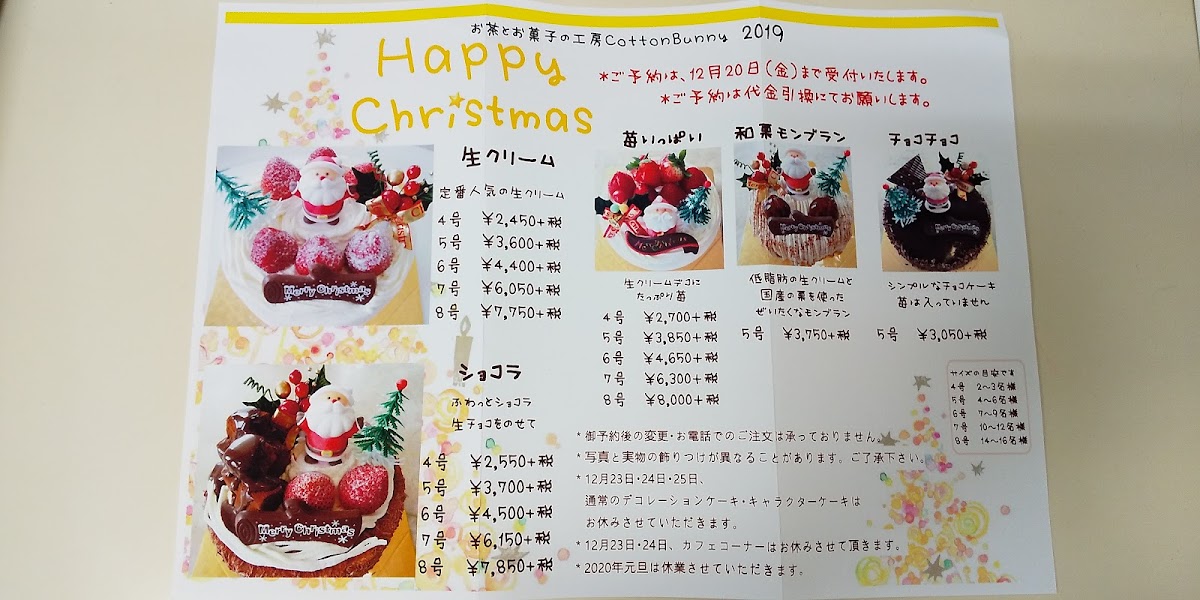 お茶とお菓子の工房CottonBunny 2019
Happy
Christmas
*ご予約は、12月20日(金)まで受付いたします。
*ご予約は代金引換にてお願いします。
生クリーム
定番人気の生クリーム
4号 ¥2,450+税
5号 ¥3,600+税
6号 ¥4,400+税
7号 ¥6,050+税
8号 ¥7,750+税
Merry Christmas
ショコラ
ふわっとショコラ
生チョコをのせて
4号 ¥2,550+税
5号 ¥3,700+税
6号 ¥4,500+税
7号 ¥6,150+税
8号 ¥7,850+税
Merry Christmas
苺いっぱい
生クリームデコに
たっぷり苺
4号 ¥2,700+税
5号 ¥3,850+税
6号 ¥4,650+税
7号 ¥6,300+税
8号 ¥8,000+税
和栗モンブラン
Merry Christmas
低脂肪の生クリームと
国産の栗を使った
ぜいたくなモンブラン
5号 ¥3,750+税
チョコチョコ
Merry Christmas
シンプルなチョコケーキ
苺は入っていません
5号 ¥3,050+税
サイズの目安です
4号 2~3名様
5号 4~6名様
6号 7~9名様
7号 10~12名様
8号 14~16名様
*御予約後の変更・お電話でのご注文は承っておりません。
*写真と実物の飾りつけが異なることがあります。ご了承下さい。
*12月23日・24日・25日、
通常のデコレーションケーキ・キャラクターケーキは
お休みさせていただきます。
*12月23日・24日、カフェコーナーはお休みさせて頂きます。
*2020年元旦は休業させていただきます。